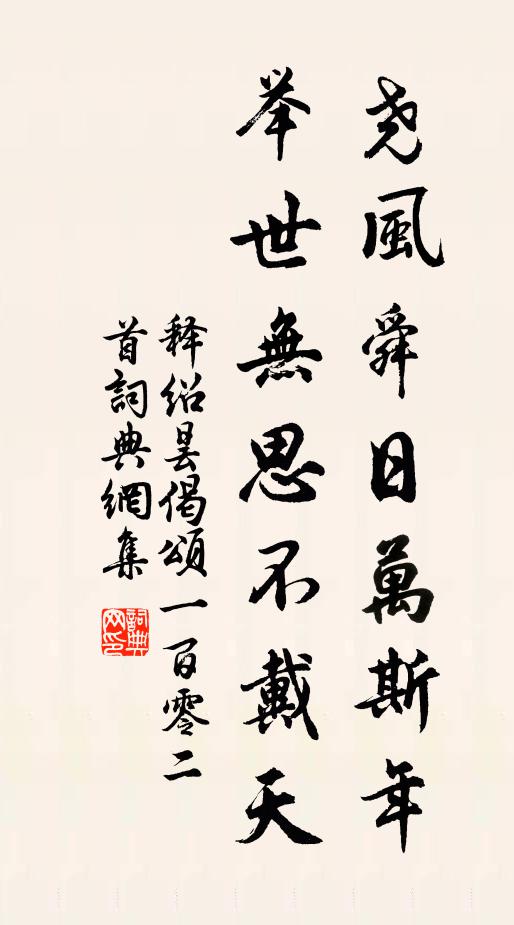 尧風舜日萬斯年
举世無思不戴天
释绍昙偈頌一百零二
首詞典網集
詞典网印